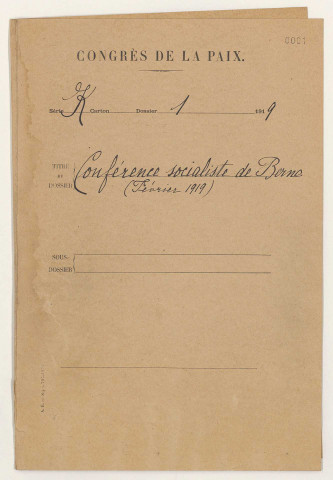 0001
CONGRÈS DE LA PAIX.
Série K Carton Dossier 1 1919
TITRE du DOSSIER Conférence socialiste de Berne
(Février 1919)
SOUS-DOSSIER